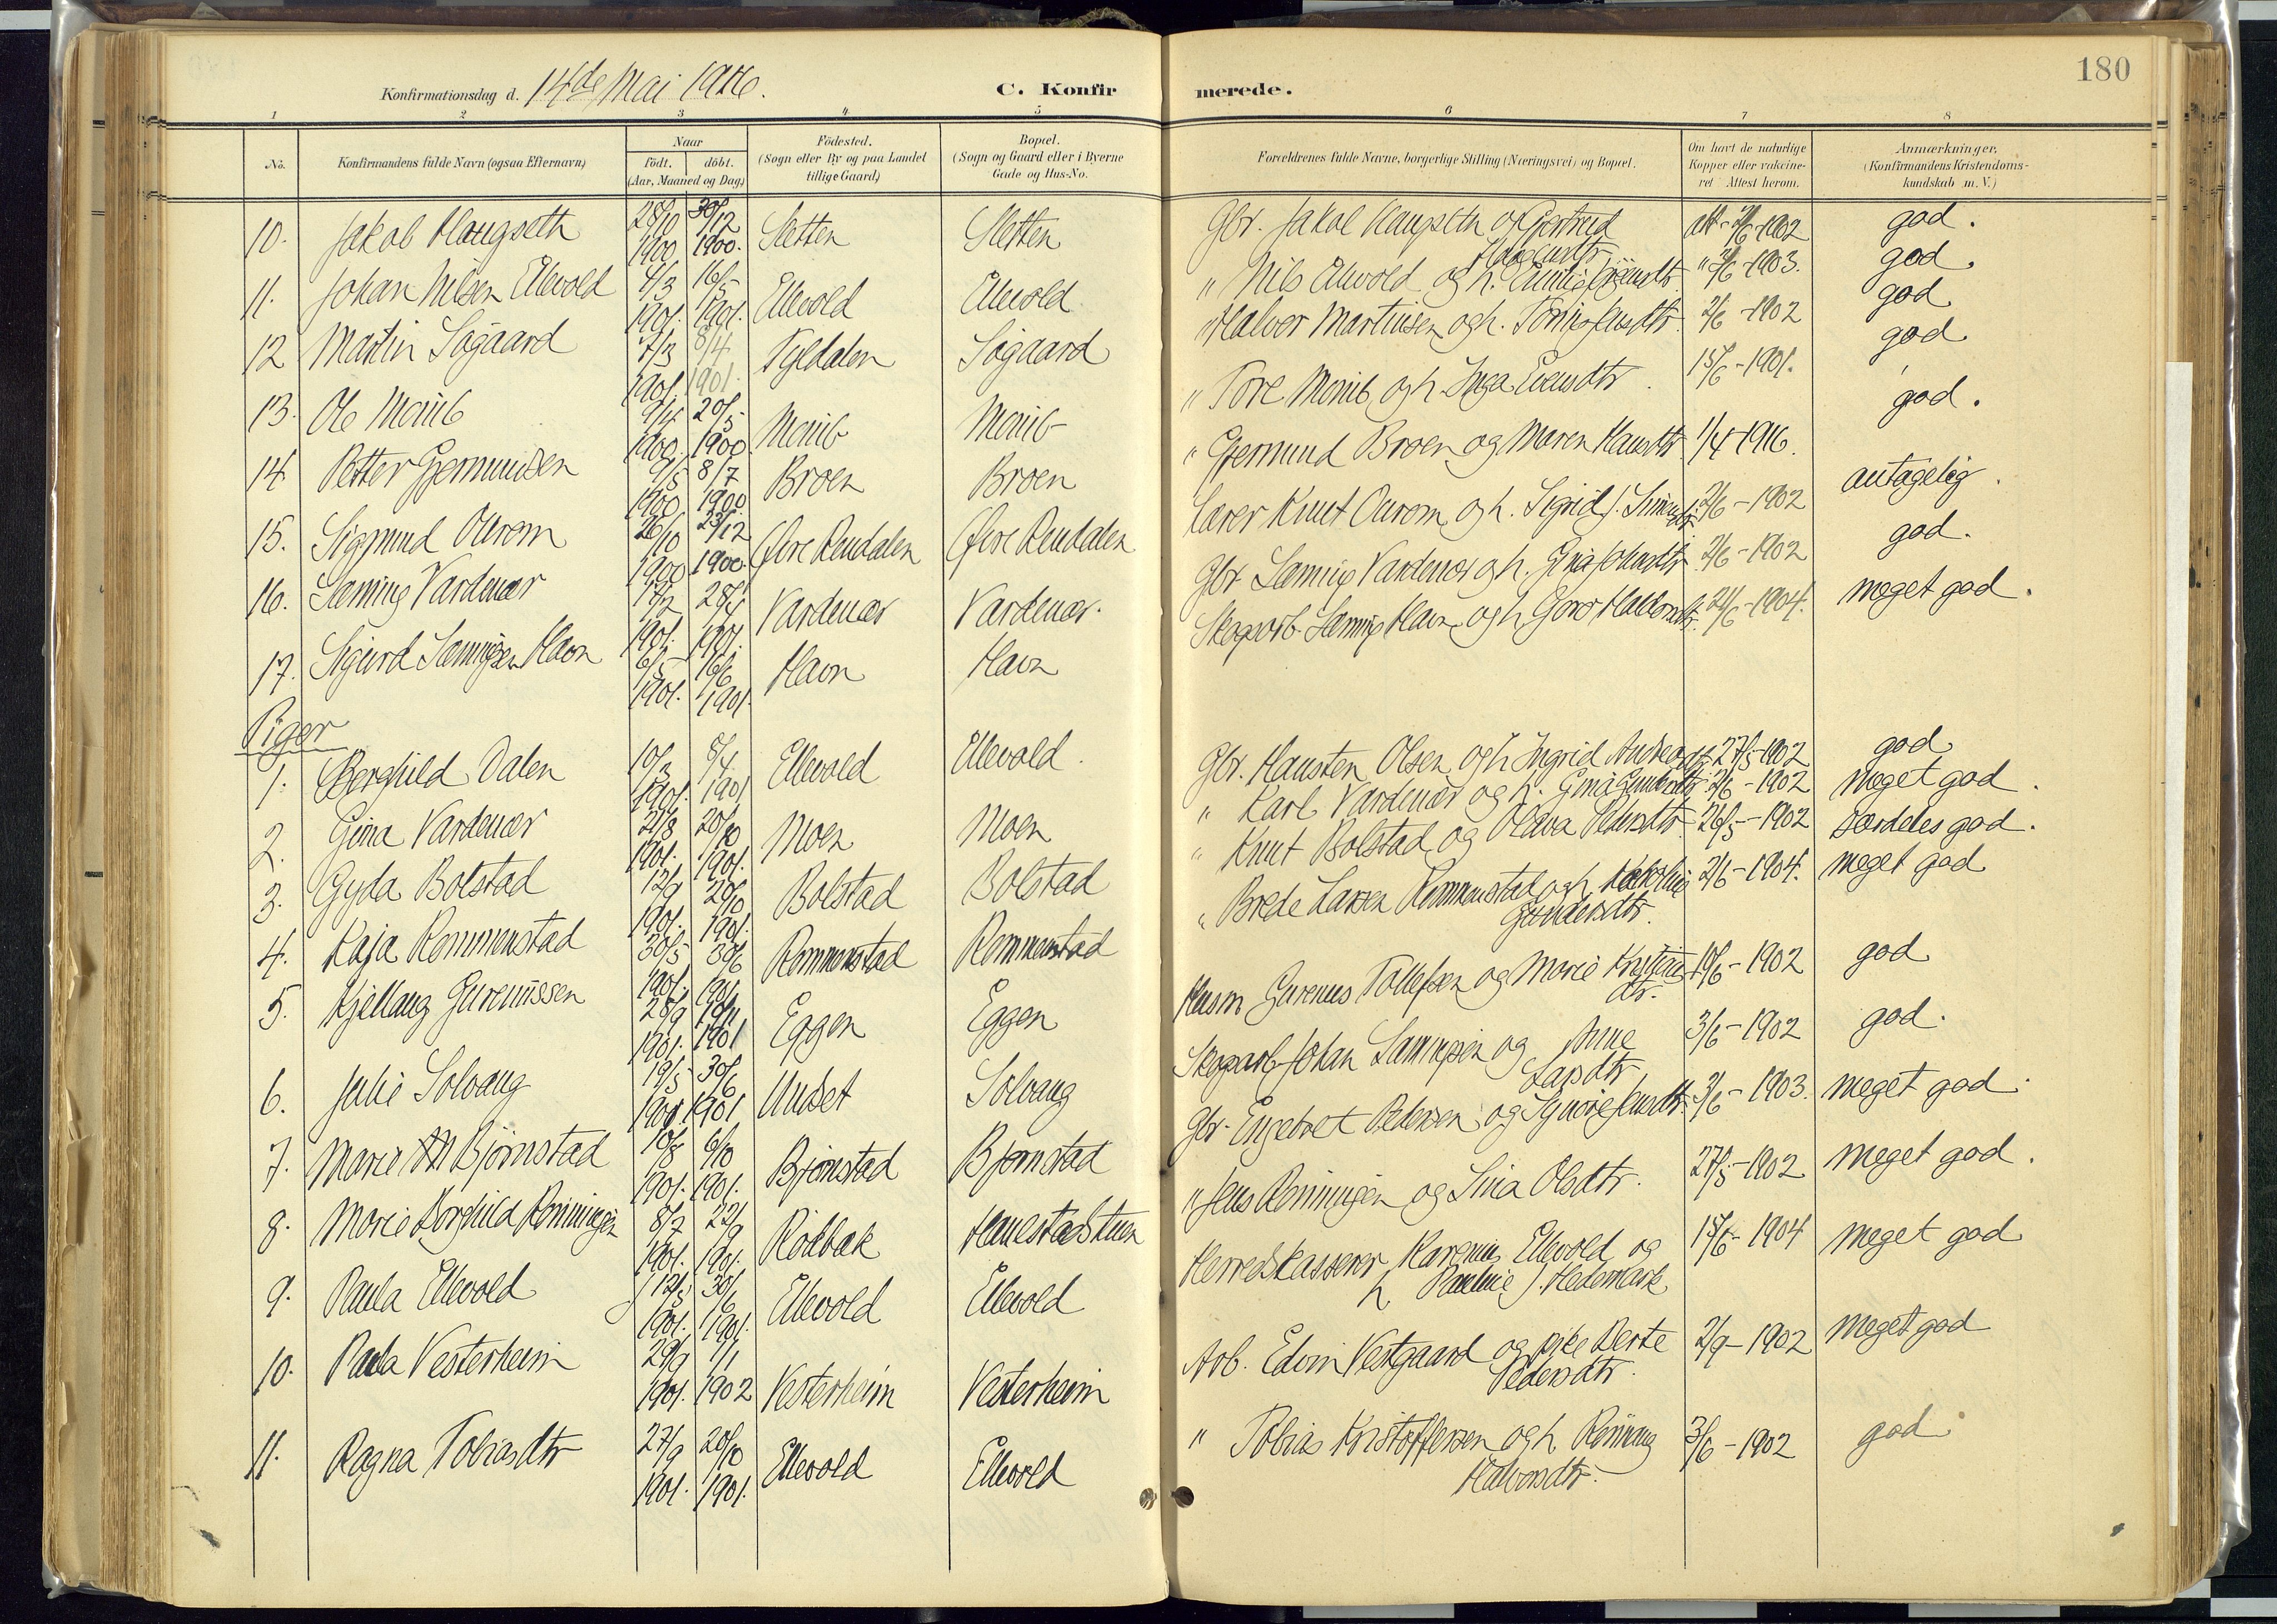 180
Konfirmationsdag d. 14de Mai 1916. C. Konfirmerede.
1 2 3 4 5 6 7 8
No. Konfirmandens fulde Navn (ogsaa Efternavn) Naar födt. döbt. (Aar, Maaned og Dag) Födested. (Sogn eller By og paa Landet tillige Gaard) Bopæl. (Sogn og Gaard eller i Byerne Gade og Hus-No. Forældrenes fulde Navne, borgerlige Stilling (Næringsvei) og Bopæl. Om havt de naturlige Kopper eller vakcineret Attest herom. Anmærkninger. (Konfirmandens Kristendomskundskab m. V.)
10. Jakob Haugseth 28/10 1900 30/12 1900. Sletten Sletten Gbr. Jakob Haugseth og Gjertrud att - 1902 god.
11. Johan Nilsen Ellevold 4/3 1901. 16/5 1901. Ellevold Ellevold " Nils Ellevold og h. " 2/6 - 1903. god.
12 Martin Søgaard 7/3 1901. 8/4 1901. Tyldalen Søgaard " Halvor Martinsen og h. 2/6 - 1902 god
13. Ole 9/4 1900. 20/5 1900 " Tore og h. Inga Evensdtr. 15/6 - 1901. god
14 Petter Gjermundsen 9/5 1900 8/7 1900. Broen Broen " Gjermund Broen og Maren Hansdtr. 1/4 1916. god.
15. Sigmund Ourom 26/10 1900 23/12 1900. Øvre Rendalen Øvre Rendalen Lærer Knut Ourom og h. Sigrid f. 2/6 - 1902 antagelig.
16. Sæming Vardenær 17/2 1901. 28/4 1901. Vardenær Vardenær. Gbr. Sæming Vardenær og h. 2/6 - 1902 god.
17. Sigurd Sæmingsen Havn 6/5 1901. 16/6 1901 Havn Havn Skogsarb. Sæming Havn og h. Goro Halvorsdtr. 21/6 - 1904. meget god.
Piger
1. Borghild Dalen 10/3 1901. 8/4 1901 Ellevold Ellevold. Gbr. Hausten Olsen og h. Ingrid 27/5 - 1902 god
2. Gina Vardenær 21/8 1901. 20/10 1901. Moen Moen " Karl Vardenær og h. Gina 2/6 - 1902 Meget god.
3. Gyda Bolstad 12/9 1901. 20/10 1901. Bolstad Bolstad " Knut Bolstad og Oldva Pedersdtr. 26/5 - 1902 særdeles god.
4. Kaja Rommenstad 30/5 1901. 30/6 1901. Rommenstad Rommenstad " Brede Larsen Rommenstad og h. Gundersdtr. 2/6 - 1904. meget god
5. Kjellaug Gureniussen 28/9 1901. 10/11 1901 Eggen Eggen Husm. Gurenus Tollefsen og Marie dtr. 19/6 - 1902 god
6. Julie Solvang 19/5 1901 30/6 1901 Undset Solvang Skogsarb. Johan Sæmingsen og Anne Larsdtr. 3/6 - 1902 god.
7. Marie Bjørnstad 10/8 1901. 6/10 1901. Bjørnstad Bjørnstad Gbr. Engebret Pedersen og 3/6 - 1903. meget god.
8. Marie Borghild Rønningen 8/7 1901. 22/9 1901. Rødbæk Hanestadstuen " Jens Rønningen og Lina Olsdtr. 27/5 - 1902 Meget god.
9. Paula Ellevold 12/5 1901. 30/6 1901. Ellevold Ellevold Herredskasserer Karenius Ellevold og h. Pauline f. Hedemark 15/6 - 1904 meget god
10. Paula Vesterheim 29/9 1901. 1/1 1902 Vesterheim Vesterheim Arb. Edvin Vestgaard og pike Berte Pedersdtr. 2/9 - 1902 Meget god
11. Ragna Tobiasdtr 27/9 1901. 20/10 1901. Ellevold Ellevold " Tobias Kristoffersen og h. Rønnaug Halvorsdtr. 3/6 - 1902 god